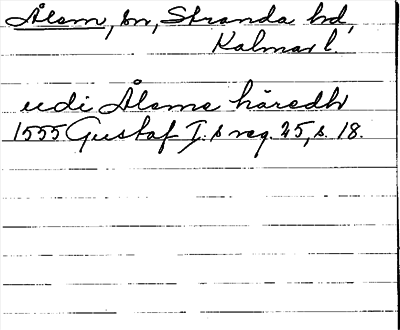 Ålem, sn, Stranda hd,
Kalmar l.
udi Åleme häredh
1555 Gustaf I:s reg. 25, s. 18.